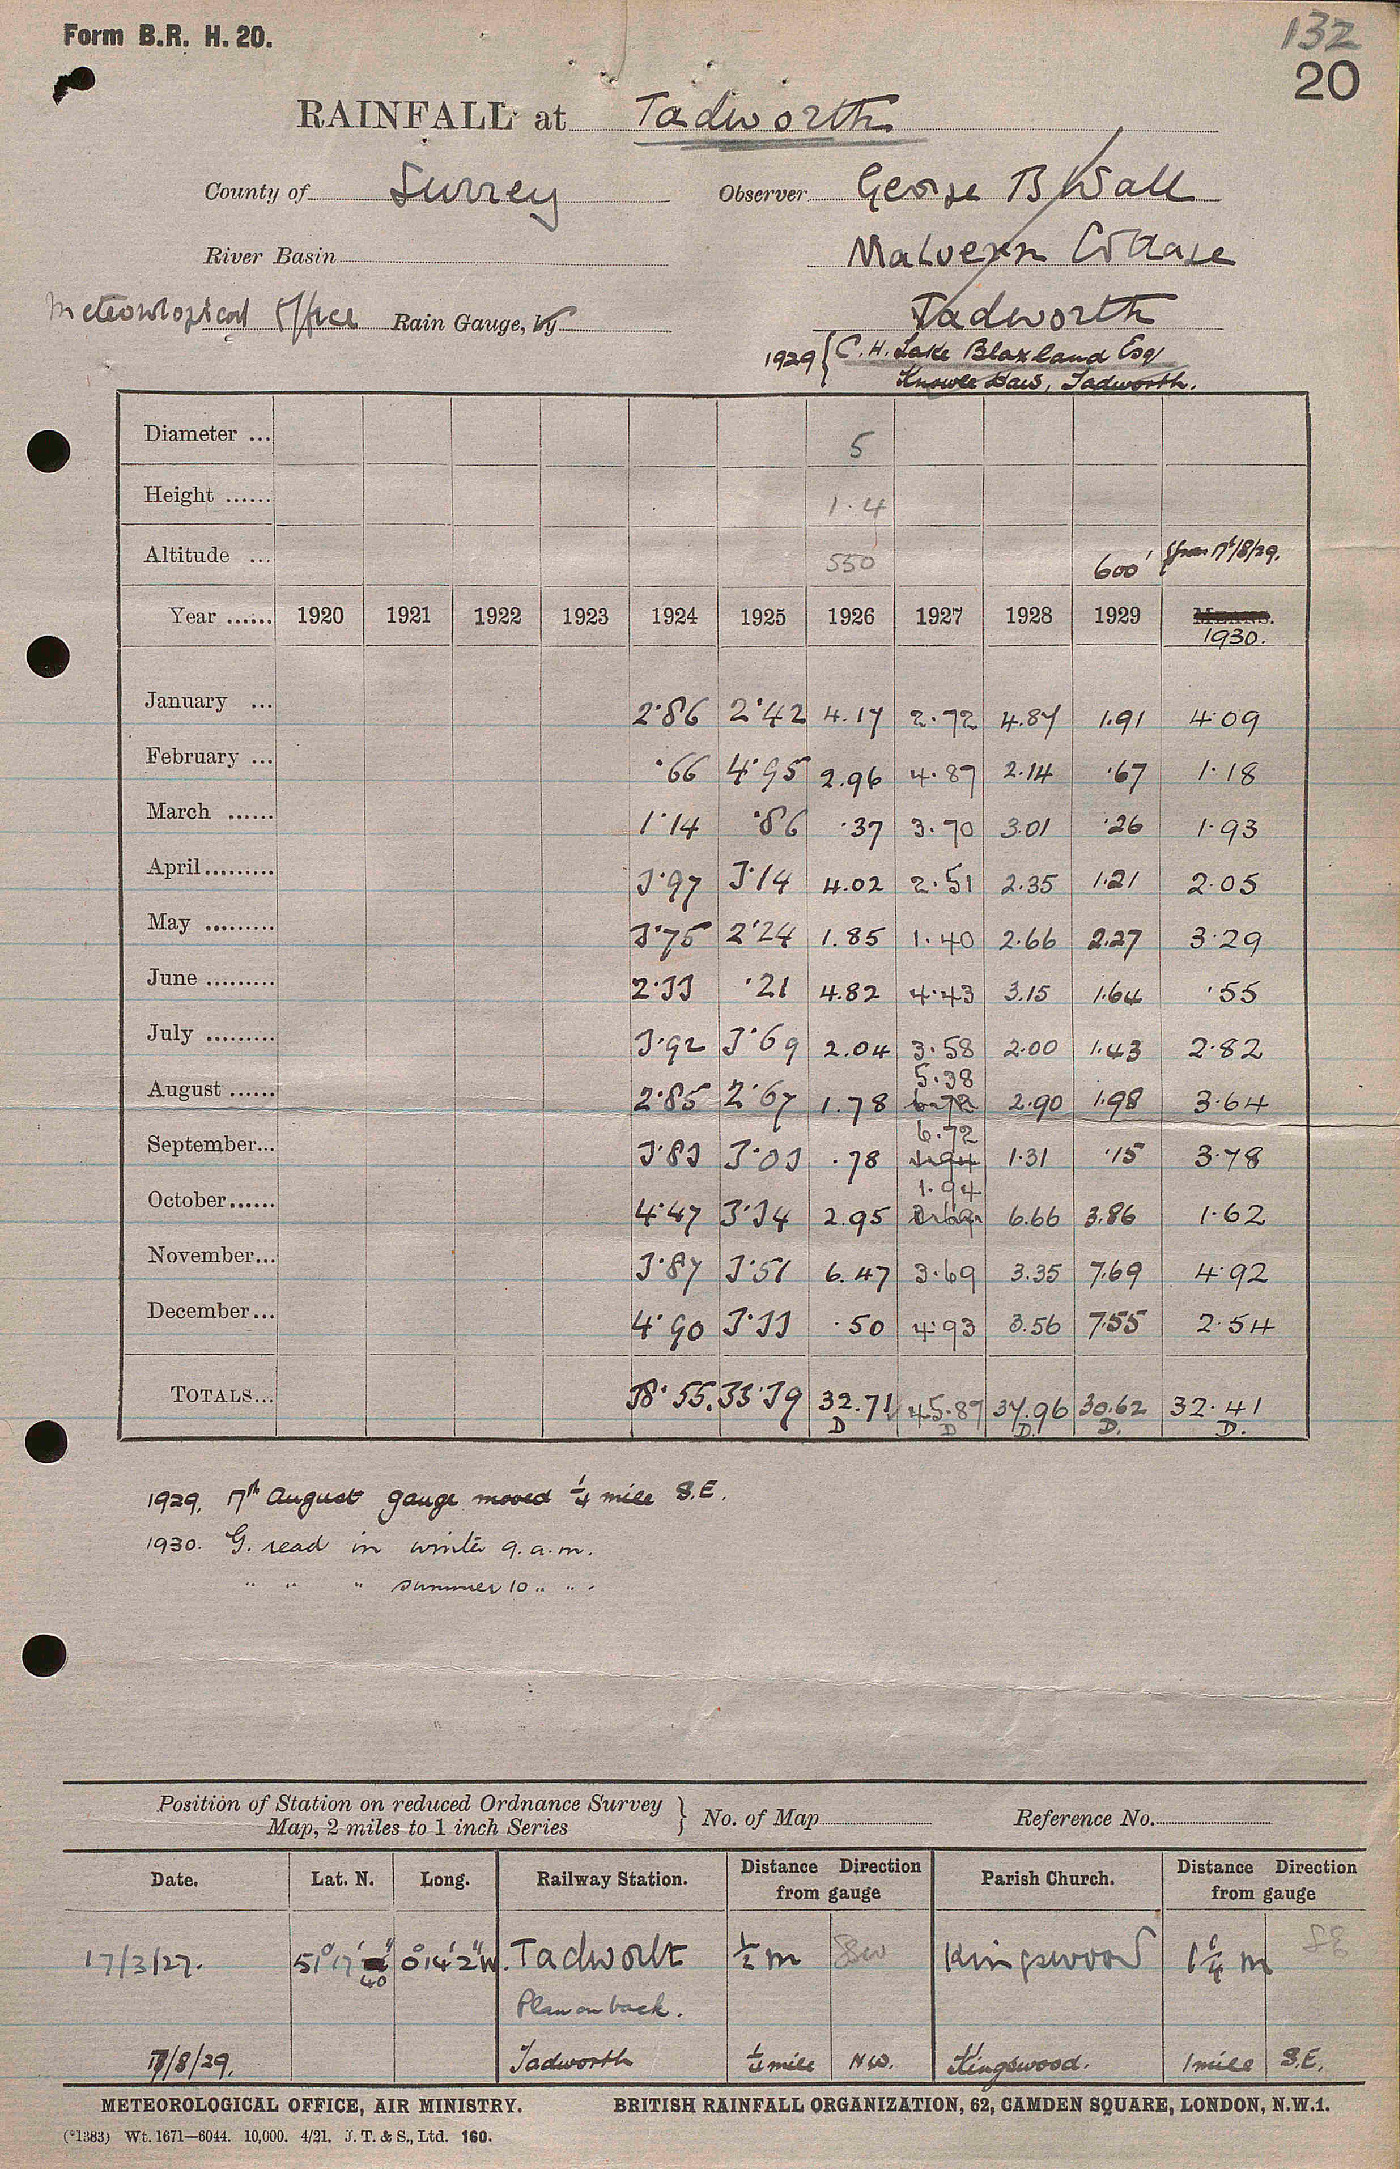 Form B.R. H. 20.
132
20
RAINFALL at Tadworth
County of Surrey Observer George B Wall
River Basin Malvern Cottage
Meteorological Office Rain Gauge, by Tadworth
1929 { C. H. Lake Blaxland Esq
Tadworth.
Diameter ... 5
Height ...... 1.4
Altitude ... 550 600' from 17/8/29.
Year ...... 1920 1921 1922 1923 1924 1925 1926 1927 1928 1929 MEANS.
1930.
January ... 2.86 2.42 4.17 2.72 4.87 1.91 4.09
February ... .66 4.95 2.96 4.87 2.14 .67 1.18
March ...... 1.14 .86 .37 3.70 3.01 .26 1.93
April ......... 3.97 3.14 4.02 2.51 2.35 1.21 2.05
May ......... 3.75 2.24 1.85 1.40 2.66 2.27 3.29
June ......... 2.33 .21 4.82 4.43 3.15 1.64 .55
July ......... 3.92 3.69 2.04 3.58 2.00 1.43 2.82
5.38
August ...... 2.85 2.67 1.78 6.72 2.90 1.98 3.64
6.72
September... 3.83 3.03 .78 1.94 1.31 .15 3.78
1.94
October ...... 4.47 3.34 2.95 3.69 6.66 3.86 1.62
November... 3.87 3.51 6.47 3.69 3.35 7.69 4.92
December ... 4.90 3.33 .50 4.93 3.56 7.55 2.54
TOTALS... 38.55 33.39 32.71 45.87 37.96 30.62 32.41
D D D. D. D.
1929, 17th August gauge moved 1/4 mile S.E.
1930. G. read in winter 9.a.m.
" " " summer 10 " " .
Position of Station on reduced Ordnance Survey
Map, 2 miles to 1 inch Series } No. of Map Reference No.
Date. Lat. N. Long. Railway Station. Distance Direction from gauge Parish Church. Distance Direction from gauge
17/3/27. 51° 17' 40" 0° 14' 2" W. Tadworth 1/2 m SW Kingswood 1 1/4 m SE
Plan on back.
17/8/29. Tadworth 1/4 mile N.W. Kingswood. 1 mile S.E.
METEOROLOGICAL OFFICE, AIR MINISTRY. BRITISH RAINFALL ORGANIZATION, 62, CAMDEN SQUARE, LONDON, N.W.1.
(*1383) Wt. 1671—6044. 10,000. 4/21. J. T. & S., Ltd. 160.